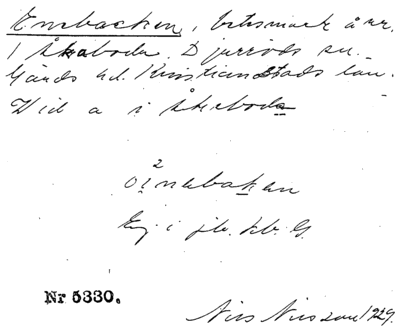 Enebacken, betesmark å nr.
1 Åkaboda. Djurröds sn.
Gärds hd. Kristianstads län.
Vid a i Åkaboda
2
Ej i jb. kb. G.
Nr 5330.
Nils Nilsson 1929.